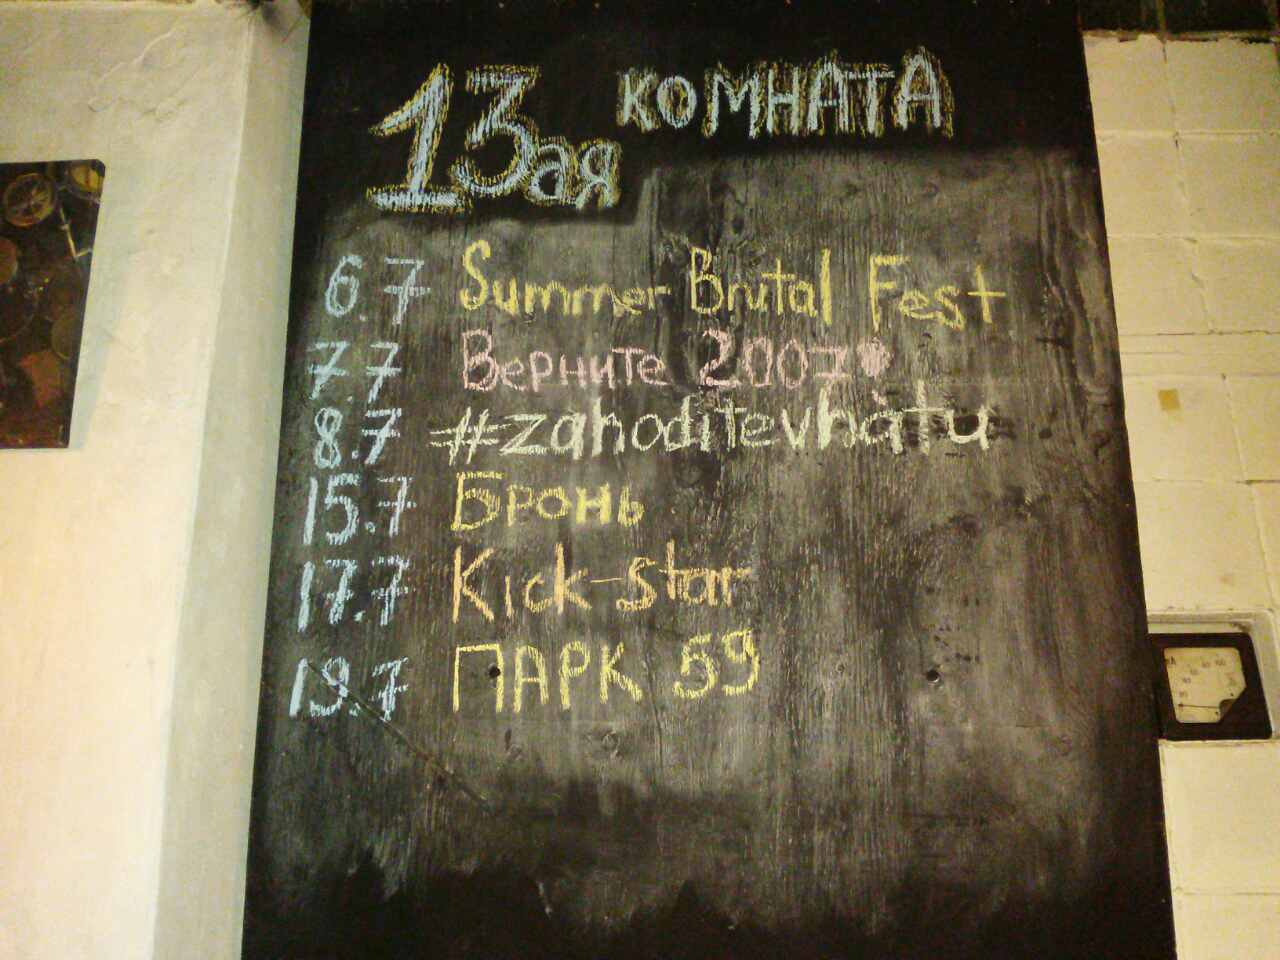 13ая КОМНАТА
6.7 Summer Brutal Fest
7.7 Верните 2007
8.7 #zahoditevhatu
15.7 Бронь
17.7 Kick-star
19.7 ПАРК 59